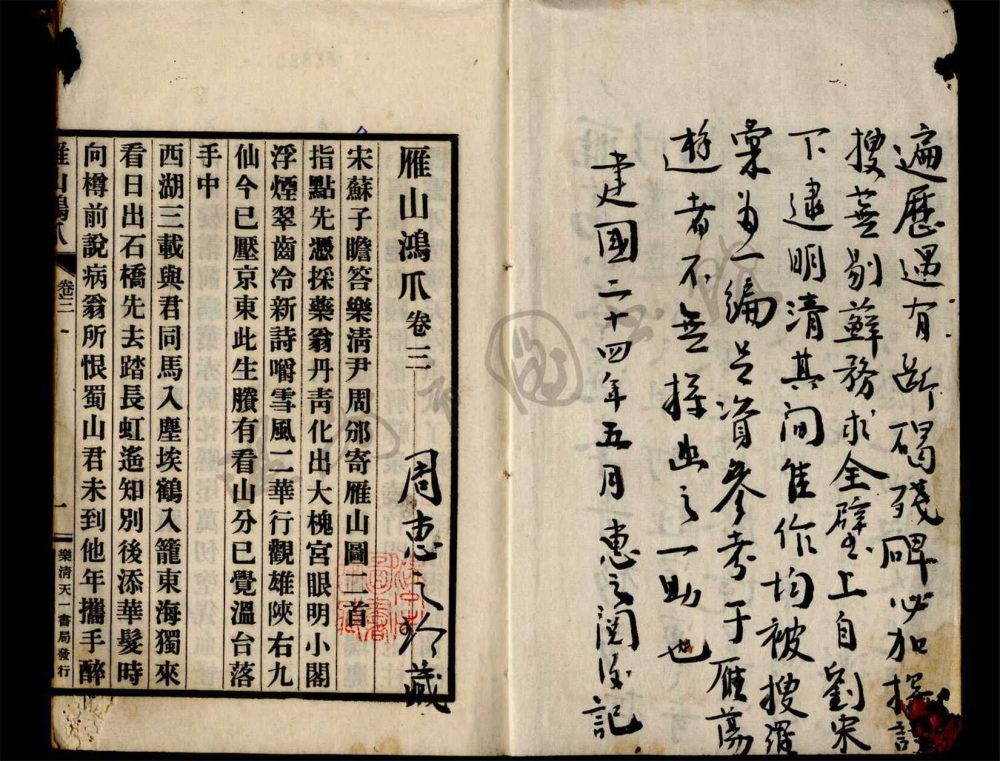 遍歷遇有斷碣殘碑必加摸
搜蕪剔蘚務求全璧上自劉宋
下逮明清其间隹作均被搜羅
彙为一编足資參考于雁蕩
遊者不無探幽之一助也
建國二十四年五月惠之閱後記
雁山鴻爪卷三
周惠之珍藏
宋蘇子瞻答樂清尹周邠寄雁山圖二首
指點先憑採藥翁丹靑化出大槐宮眼明小閣
浮煙翠齒冷新詩嚼雪風二華行觀雄陝右九
仙今已壓京東此生賸有看山分已覺溫台落
手中
西湖三載與君同馬入塵埃鶴入籠東海獨來
看日出石橋先去踏長虹遙知別後添華髮時
向樽前說病翁所恨蜀山君未到他年攜手醉
雁山鴻爪
卷三
一
樂清天一書局發行